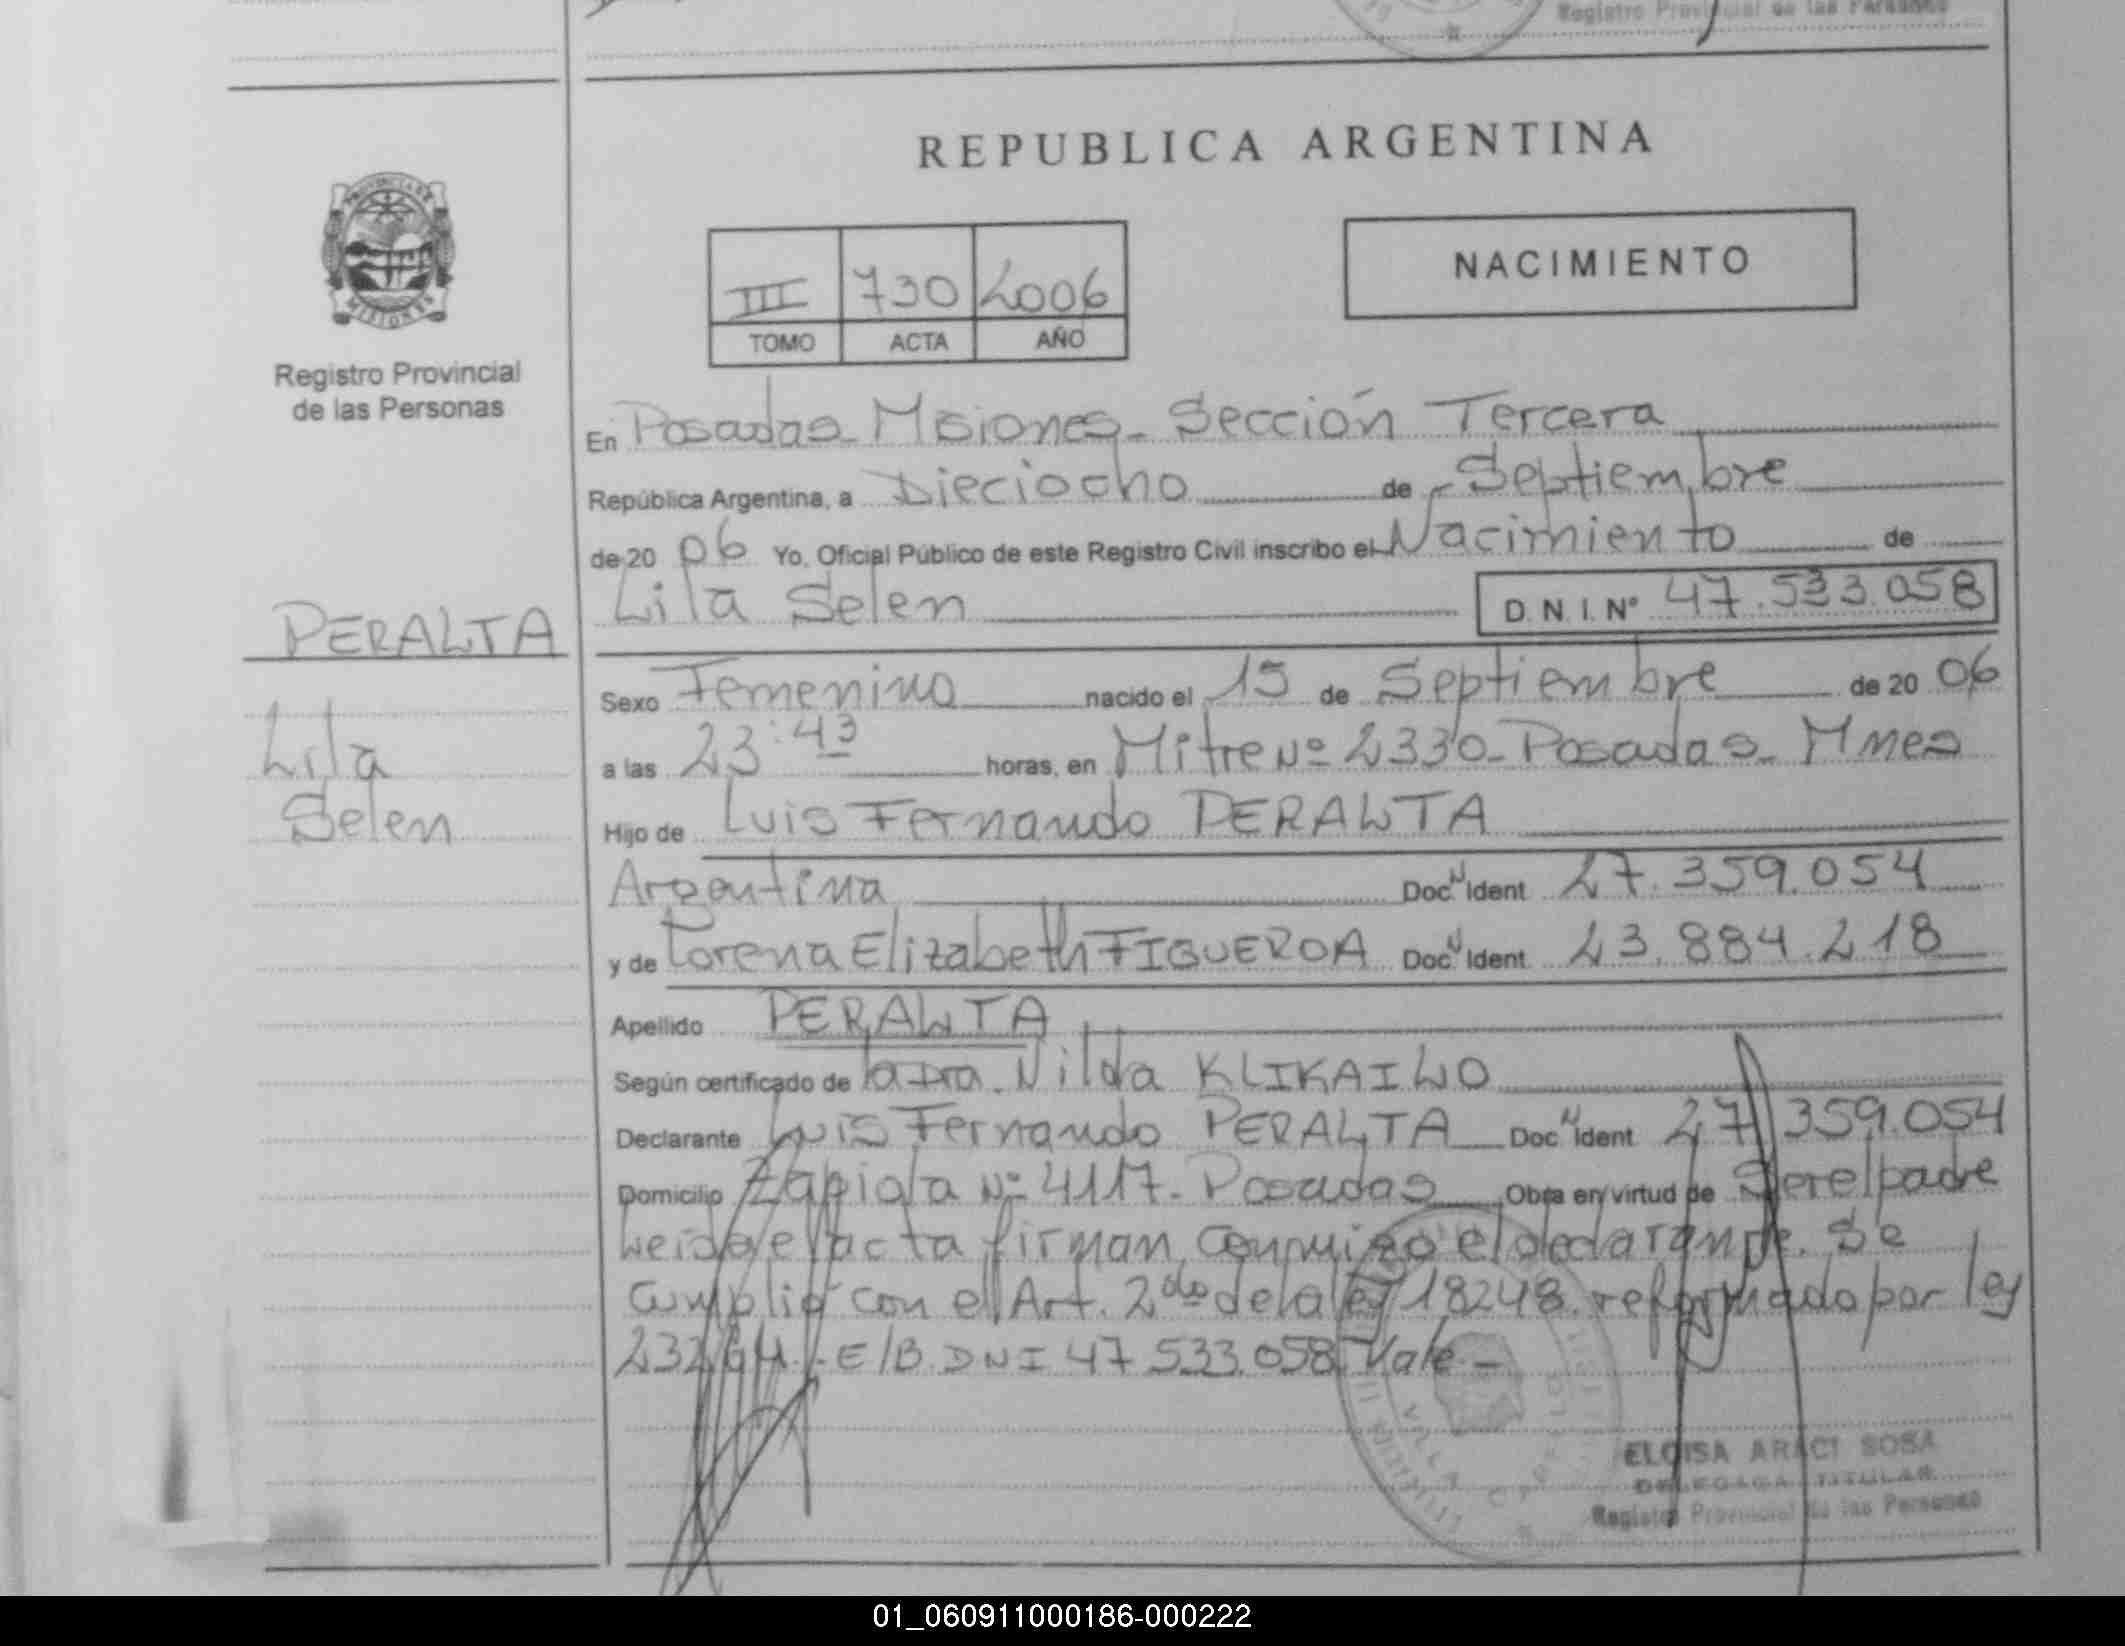 Registro Provincial de las Personas
REPUBLICA ARGENTINA
PROVINCIA DE
MISIONES
Registro Provincial
de las Personas
III 730 2006
TOMO ACTA AÑO
NACIMIENTO
En Posadas - Misiones - Sección Tercera
República Argentina, a Dieciocho de Septiembre
de 20 06 Yo, Oficial Público de este Registro Civil inscribo el Nacimiento de
Lila Selen D. N. I. Nº 47.533.058
PERALTA
Lila
Selen
Sexo Femenino nacido el 15 de Septiembre de 20 06
a las 23:43 horas, en Mitre Nº 2330 - Posadas - Mnes
Hijo de Luis Fernando PERALTA
Argentina Doc. Ident 27.359.054
y de Lorena Elizabeth FIGUEROA Doc. Ident 23.884.218
Apellido PERALTA
Según certificado de la Dra. Nilda KLIKAILO
Declarante Luis Fernando PERALTA Doc. Ident 27.359.054
Domicilio Zapiola Nº 4117 - Posadas Obra en virtud de Ser el padre
Leida el acta firman conmigo el declarante. Se
cumplió con el Art. 2do de la ley 18248 reformado por ley
23264. - E/B. DNI 47.533.058 Vale -
ELOISA ARACI SOSA
DELEGADA TITULAR
Registro Provincial de las Personas
01_060911000186-000222